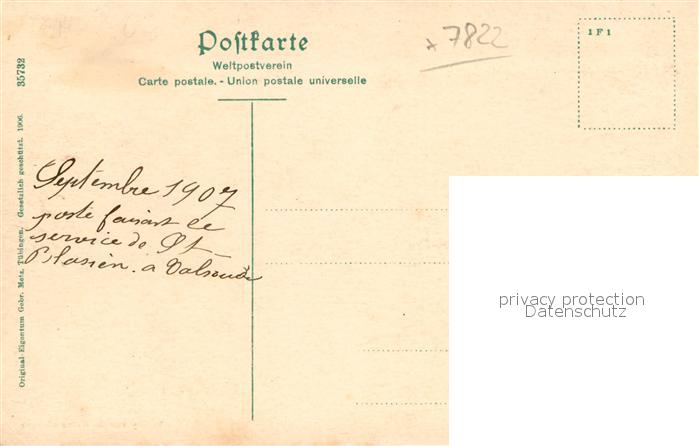 Postkarte
Weltpostverein
Carte postale. - Union postale universelle
x 7822
1 F 1
35732
Original-Eigentum Gebr. Metz, Tübingen. Gesetzlich geschützt. 1906.
Septembre 1907
poste faisant le
service de St
à
privacy protection
Datenschutz